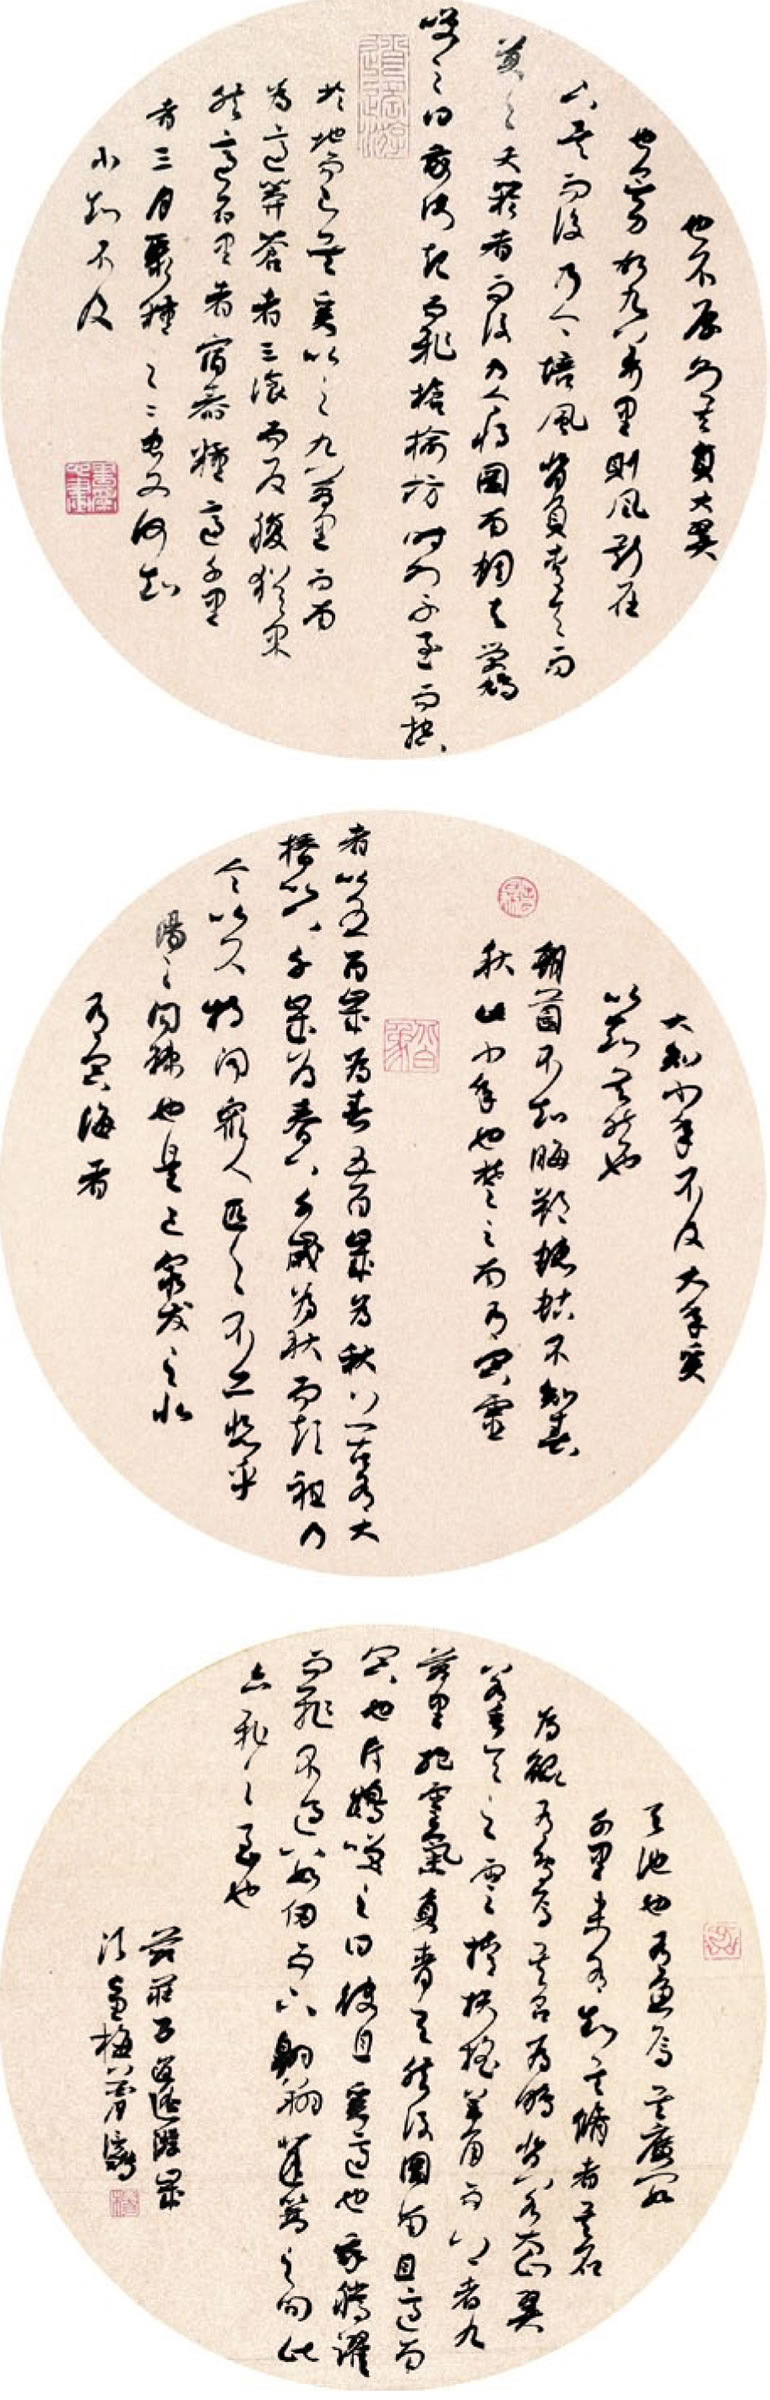 也不厚則其負大翼
也無力故九萬里則風斯在
下矣而後乃今培風背負青天而
莫之夭閼者而後乃今將圖南蜩與學鳩
笑之曰我決起而飛搶榆枋時則不至而控
逍遙游
於地而已矣奚以之九萬里而南
為適莽蒼者三湌而反腹猶果
然適百里者宿舂糧適千里
者三月聚糧之二蟲又何知
小知不及
大知小年不及大年奚
以知其然也
朝菌不知晦朔蟪蛄不知春
秋此小年也楚之南有冥靈
者以五百歲為春五百歲為秋上古有大
椿以八千歲為春八千歲為秋而彭祖乃
今以久特聞眾人匹之不亦悲乎
湯之問棘也是已窮髮之北
有冥海者
天池也有魚焉其廣數
千里未有知其脩者其名
為鯤有鳥焉其名為鵬背若太山翼
若垂天之雲摶扶搖羊角而上者九
萬里絕雲氣負青天然後圖南且適南
冥也斥鴳笑之曰彼且奚適也我騰躍
而飛不過數仞而下翱翔蓬蒿之間此
亦飛之至也
莊子逍遙遊歲
梅月